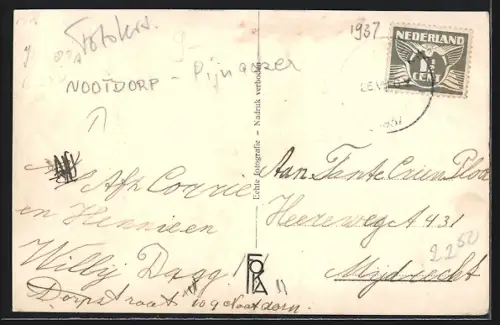 Fotokrt.
1937
NOOTDORP - Pijnacker
NEDERLAND
CENT
Echte fotografie – Nadruk verboden
Afz Corrie
en Hennie en
Willy Dagg!!
Dorpstraat 109 Nootdorp.
Aan Tante
Heereweg A 431
Mijdrecht
2250
FOKA